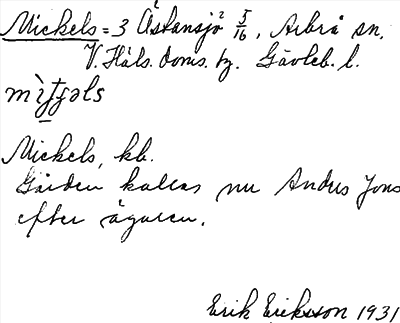 Mickels = 3 Östansjö² 5/16, Arbrå sn.
V. Häls. doms. tg. Gävleb. l.
Mickels, kb.
Gården kallas nu Anders Jons
efter ägaren.
Erik Eriksson 1931